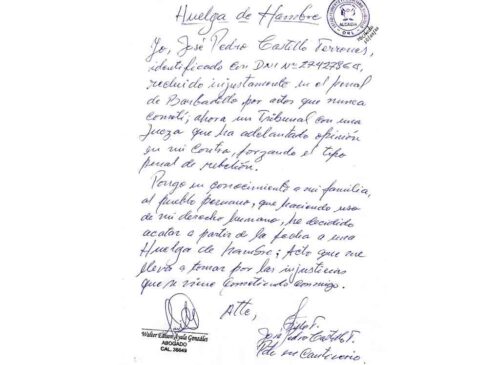 Huelga de Hambre
Yo, José Pedro Castillo Terrones,
identificado con DNI Nº 27427864,
recluido injustamente en el penal
de Barbadillo por actos que nunca
cometí; ahora un Tribunal con una
jueza que ha adelantado opinión
en mi contra, forzando el tipo
penal de rebelión.
Pongo en conocimiento a mi familia,
al pueblo peruano, que haciendo uso
de mi derecho humano, he decidido
acatar a partir de la fecha a una
Huelga de hambre; Acto que me
lleva a tomar por las injusticias
que se viene cometiendo conmigo.
Atte,
José Pedro Castillo T.
Pdte en Cautiverio.
Walter Edison Ayala Gonzales
ABOGADO
CAL. 36649
ALCAIDIA